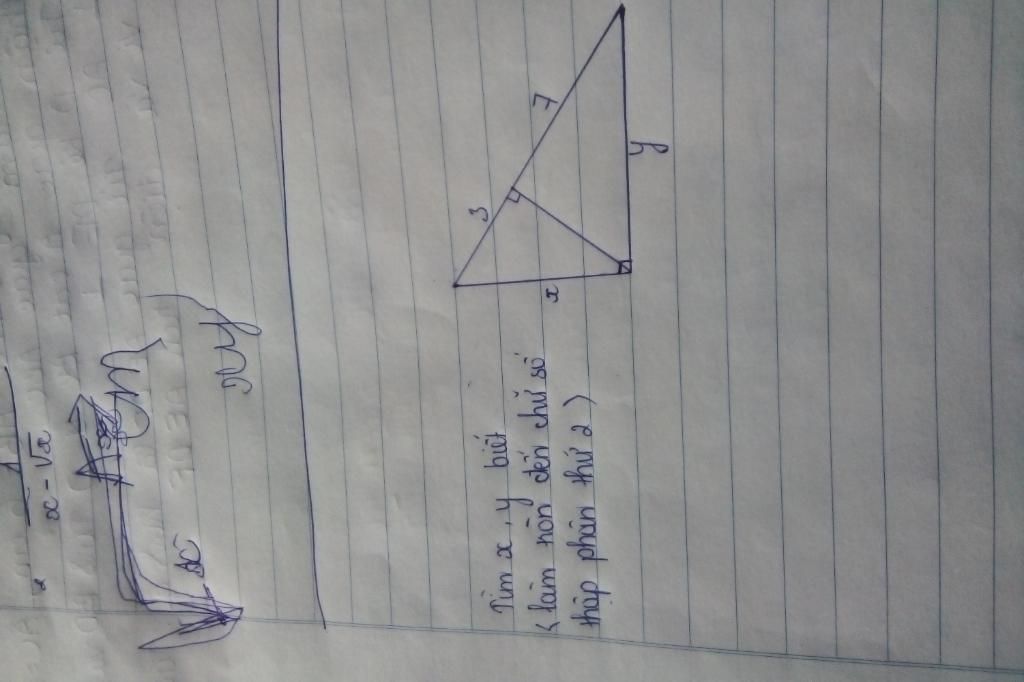 x - √x
Tìm x, y biết
( làm tròn đến chữ số
thập phân thứ 2 )
3
7
x
y